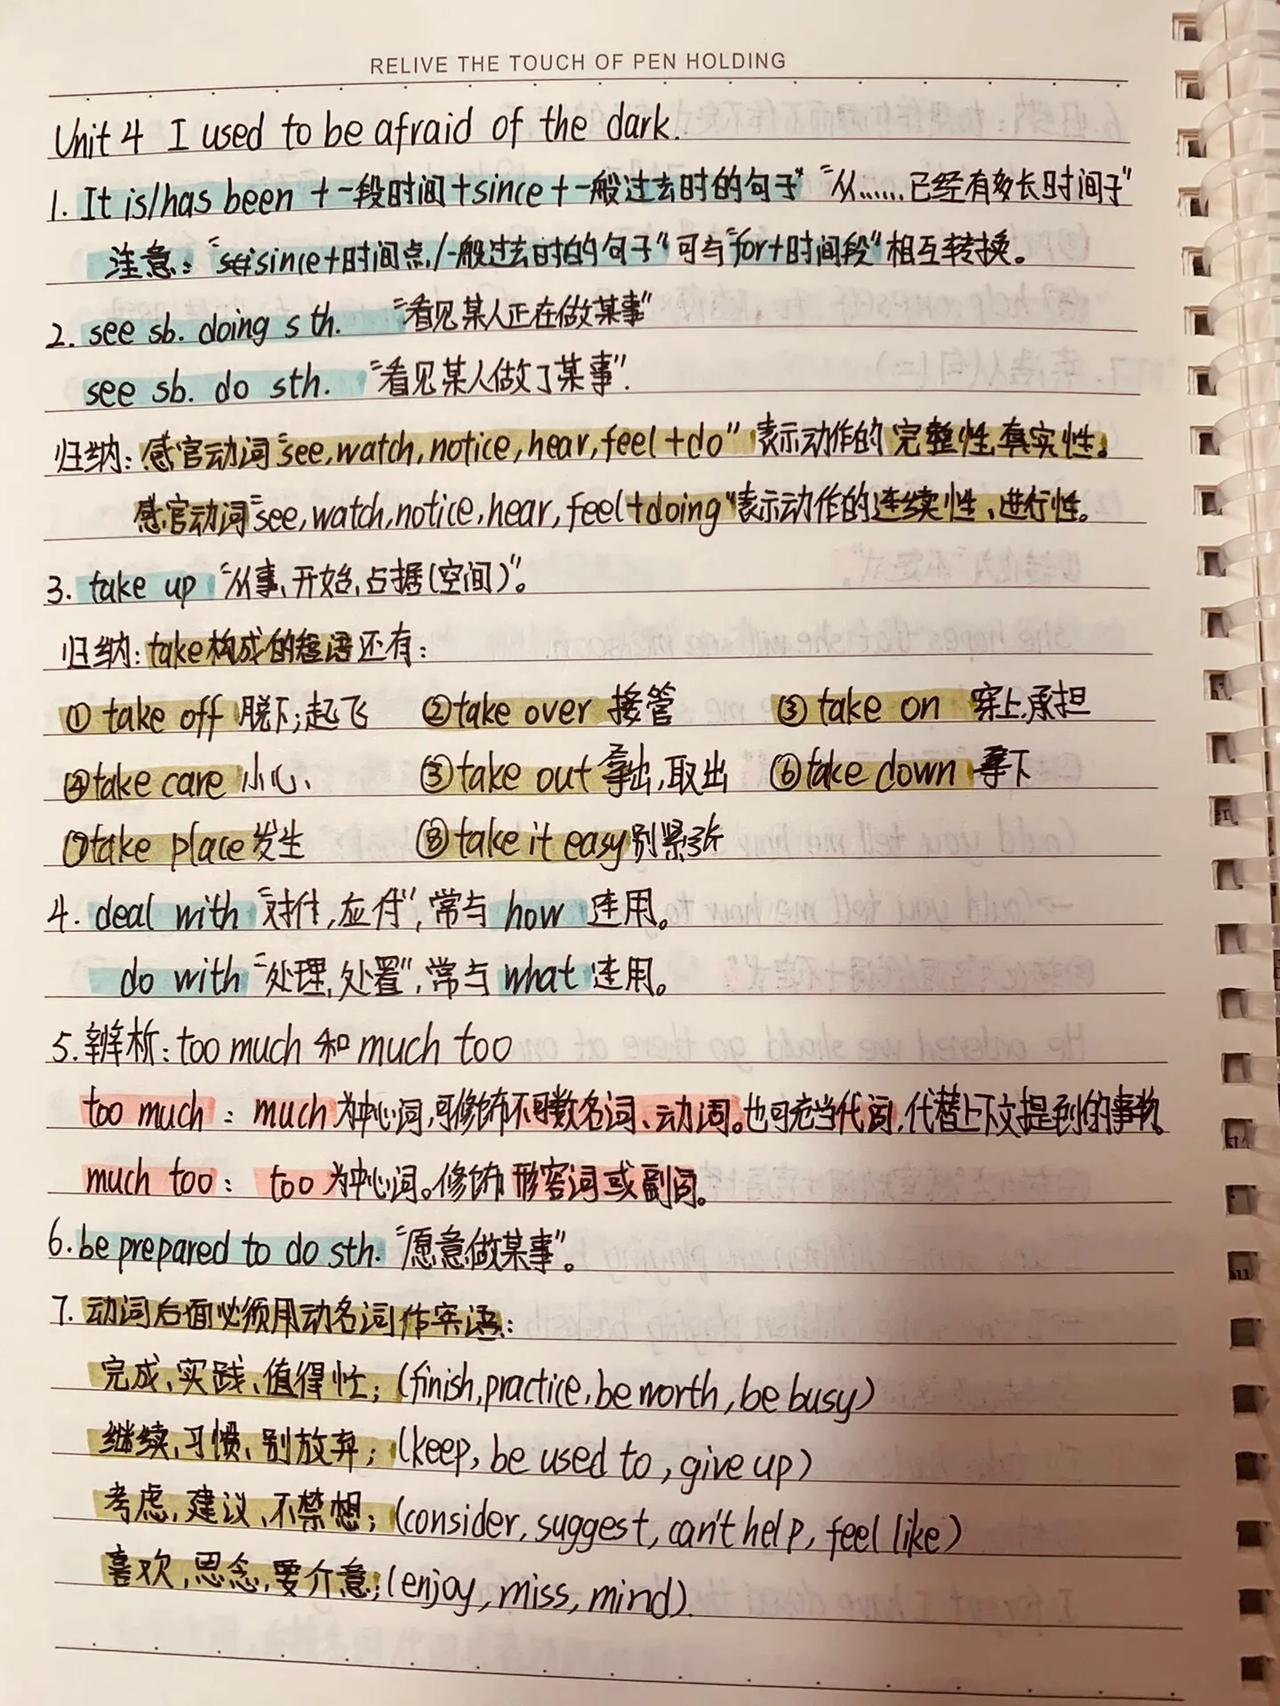 RELIVE THE TOUCH OF PEN HOLDING
Unit 4 I used to be afraid of the dark.
1. It is/has been +一段时间+since+一般过去时的句子" "从……已经有多长时间了"
注意: "since+时间点/一般过去时的句子"可与"for+时间段"相互转换。
2. see sb. doing sth. "看见某人正在做某事"
see sb. do sth. "看见某人做了某事".
归纳: 感官动词"see, watch, notice, hear, feel+do" 表示动作的完整性,真实性。
感官动词"see, watch, notice, hear, feel+doing"表示动作的连续性、进行性。
3. take up "从事、开始,占据(空间)"。
归纳: take构成的短语还有:
① take off 脱下;起飞 ②take over 接管 ③ take on 穿上,承担
④take care 小心、 ⑤take out 拿出,取出 ⑥take down 拿下
⑦take place 发生 ⑧take it easy 别紧张
4. deal with "对付,应付", 常与 how 连用。
do with "处理,处置", 常与 what 连用。
5. 辨析: too much 和 much too
too much: much为中心词,可修饰不可数名词、动词。也可充当代词,代替上下文提到的事物。
much too: too为中心词。修饰形容词或副词。
6. be prepared to do sth. "愿意做某事"。
7. 动词后面必须用动名词作宾语:
完成、实践、值得忙; (finish, practice, be worth, be busy)
继续、习惯、别放弃; (keep, be used to, give up)
考虑,建议、不禁想; (consider, suggest, can't help, feel like)
喜欢,思念,要介意; (enjoy, miss, mind).